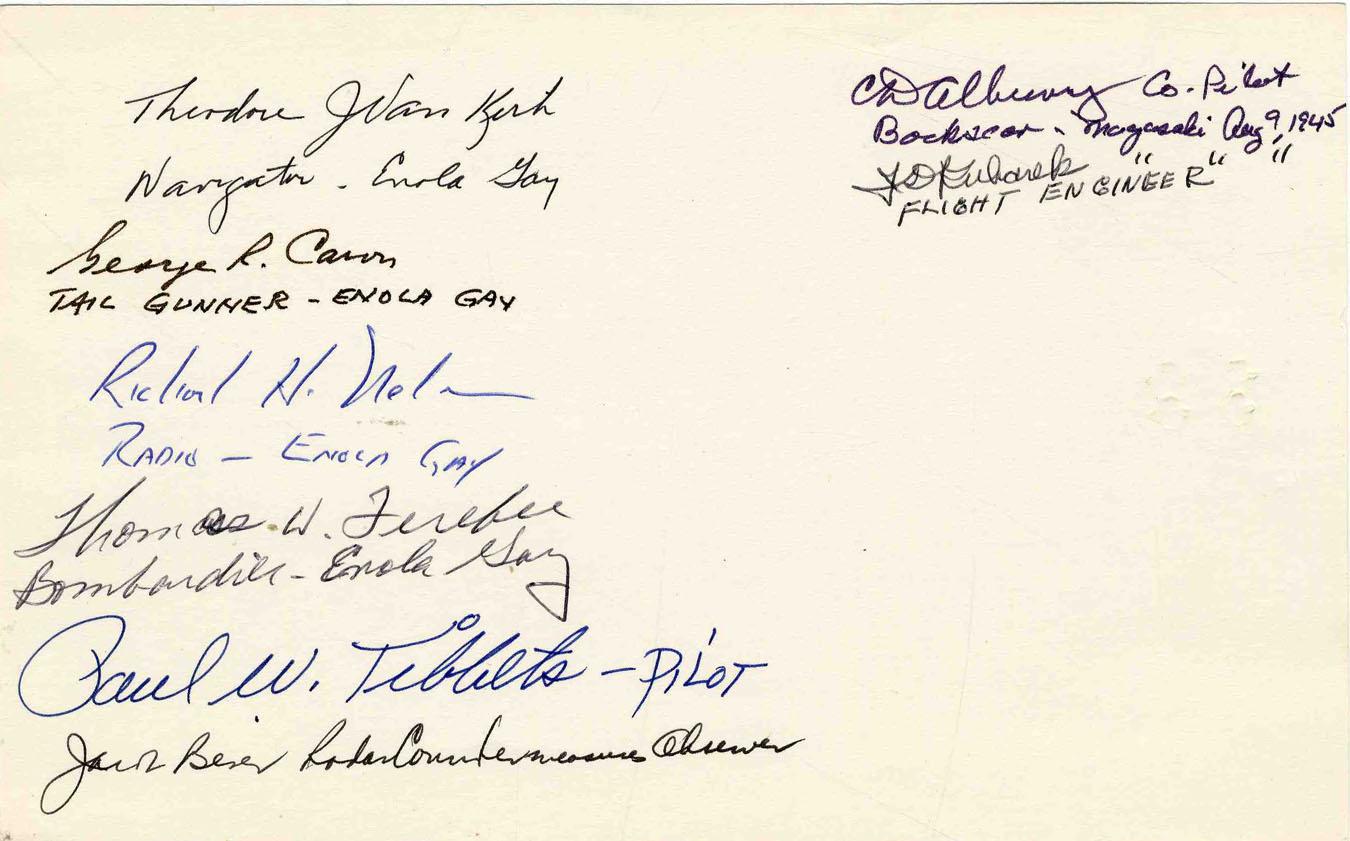 Theodore J Van Kirk
Navigator - Enola Gay
George R. Caron
TAIL GUNNER - ENOLA GAY
Richard H. Nelson
RADIO - ENOLA GAY
Thomas W. Ferebee
Bombardier - Enola Gay
Paul W. Tibbets - PILOT
Jacob Beser Radar Countermeasures Observer
CD Albury Co-Pilot
Bockscar - Nagasaki Aug 9, 1945
JD Kuharek " " "
FLIGHT ENGINEER